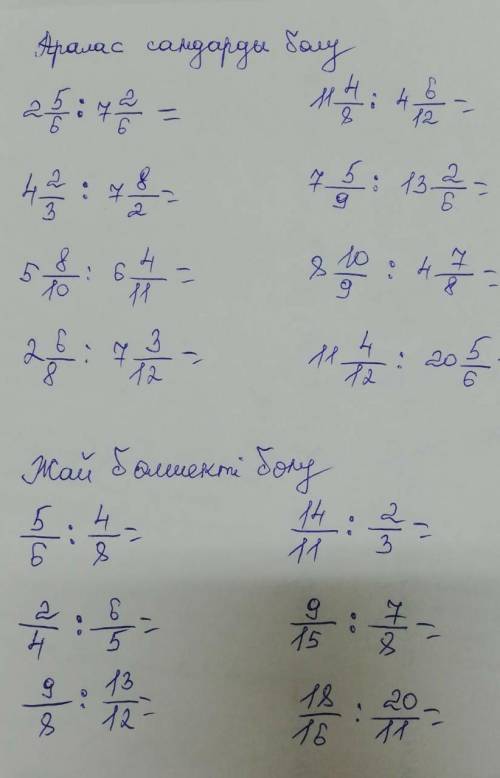 Аралас сандарды бөлу
2 5/6 : 7 2/6 =
11 4/8 : 4 6/12 =
4 2/3 : 7 8/2 =
7 5/9 : 13 2/6 =
5 8/10 : 6 4/11 =
8 10/9 : 4 7/8 =
2 6/8 : 7 3/12 =
11 4/12 : 20 5/6 =
Жай бөлшекті бөлу
5/6 : 4/8 =
14/11 : 2/3 =
2/4 : 6/5 =
9/15 : 7/8 =
9/8 : 13/12 =
18/16 : 20/11 =